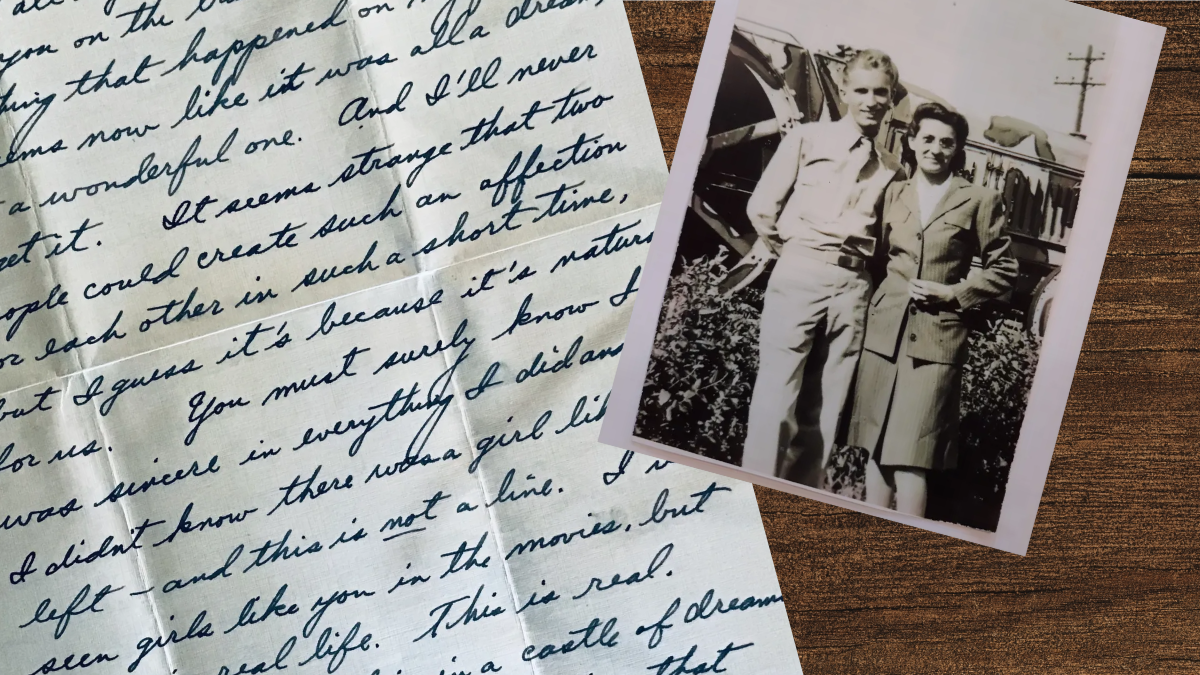 you on the
thing that happened on
ems now like it was all a dream,
a wonderful one. And I'll never
get it. It seems strange that two
ople could create such an affection
or each other in such a short time,
but I guess it's because it's natura
for us. You must surely know I
was sincere in everything I did and
I didn't know there was a girl lik
left - and this is not a line. I
seen girls like you in the movies, but
real life. This is real.
in a castle of dream
that